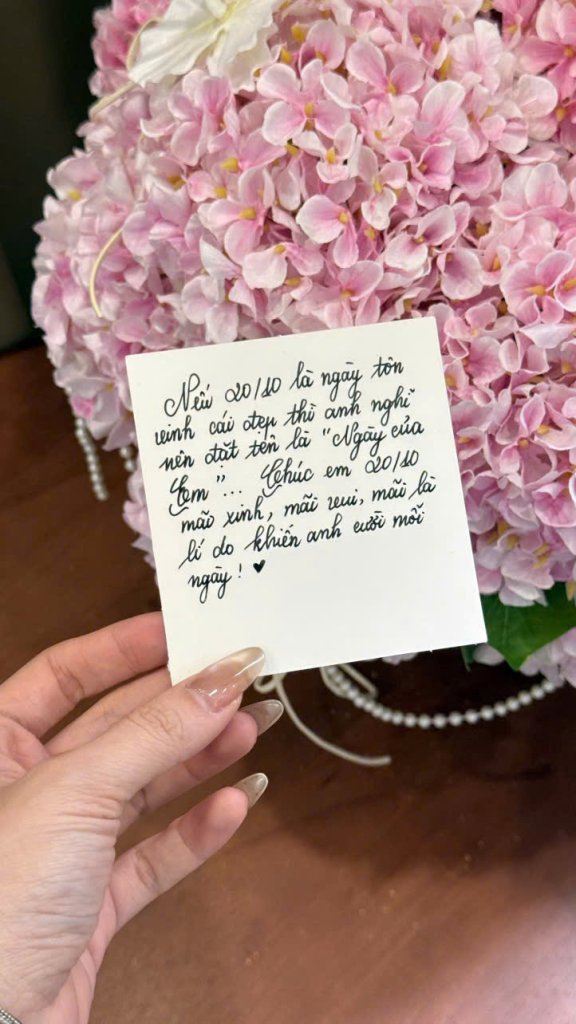 Nếu 20/10 là ngày tôn
vinh cái đẹp thì anh nghĩ
nên đặt tên là "Ngày của
Em"... Chúc em 20/10
mãi xinh, mãi vui, mãi là
lí do khiến anh cười mỗi
ngày! ♥